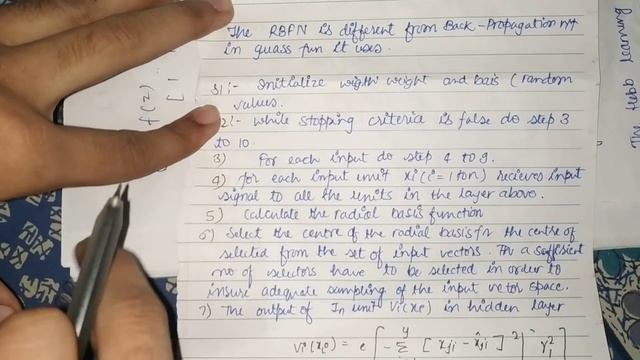 The RBFN is different from Back-Propagation n/w
in guass fun it uses.
S1:- Initialize wigth weight and bais (random
values.
S2:- While stopping criteria is false do step 3
to 10.
3) For each input do step 4 to 9.
4) for each input unit xi (i = 1 to n) recieves input
signal to all the units in the layer above.
5) Calculate the radial basis function
6) Select the centre of the radial basis fn the centre of
selected from the set of input vectors. A sufficient
no of selectors have to be selected in order to
insure adequate sampling of the input vector space.
7) The output of Im unit Vi(xi) in hidden layer
Vi(xi) = e [ - Σ [ xji - x̂ji ]² | γi² ]
f(z)
[ 1
The Hebb learning